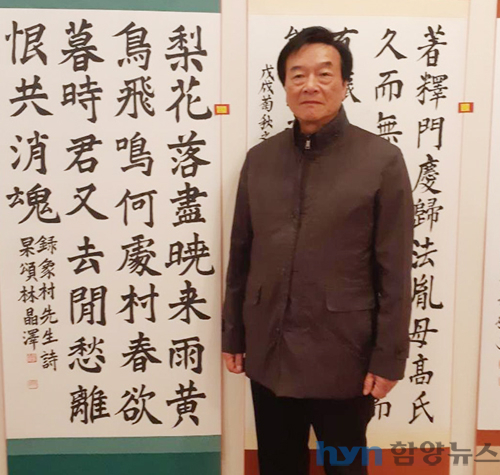 著釋門慶歸法胤母髙氏
久而無
戊戌菊秋之
梨花落盡曉来雨黄
鳥飛鳴何處村春欲
暮時君又去閒愁離
恨共消魂
録象村先生詩
杲頌林晶澤
hyn 함양뉴스